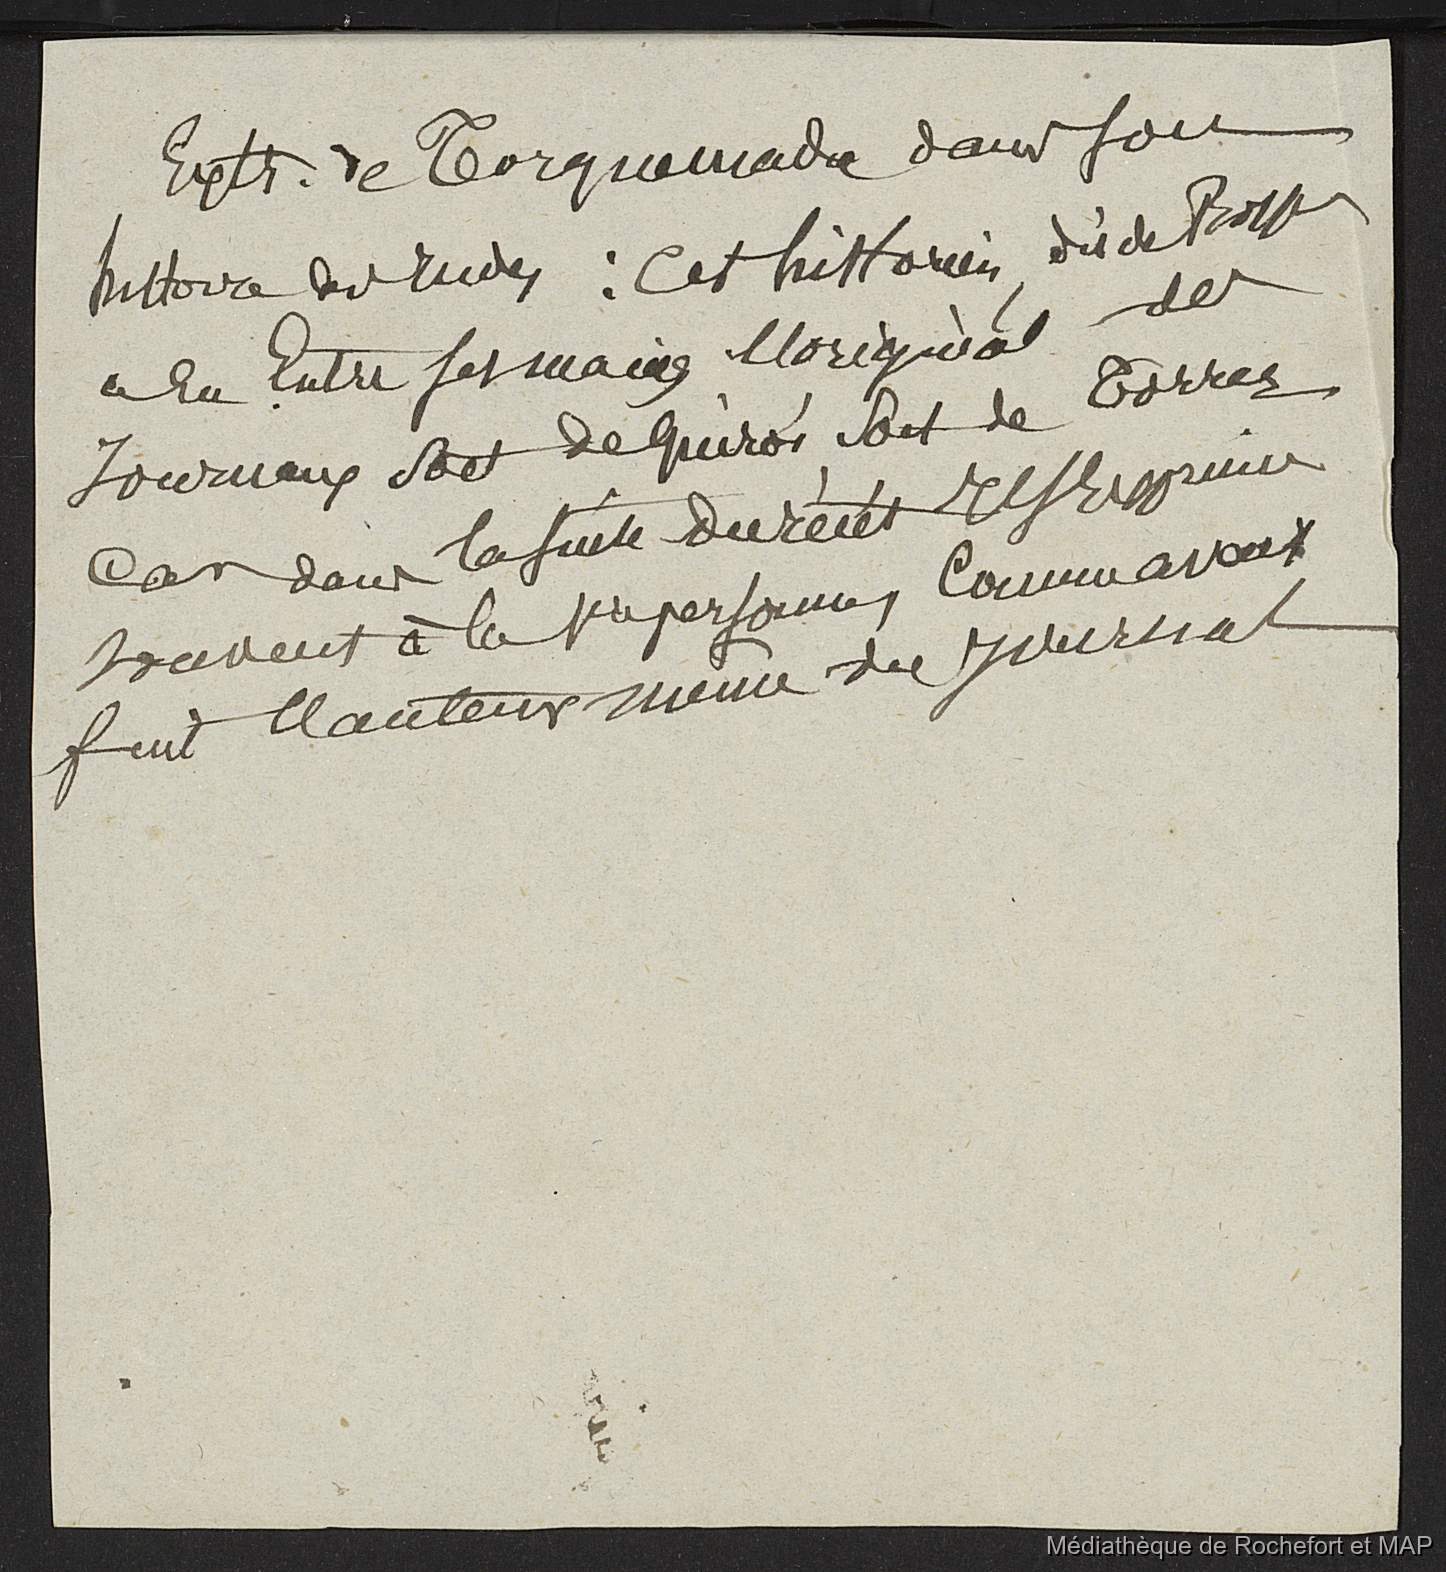 Extr. de Torquemada dans son
histoire des Indes : Cet historien, dit de Bross
a eu Entre ses mains l'original des
Journaux Soit de Quiros Soit de Torrez
Car dans la suite du récit il s'exprime
souvent à la 1re personne, Comme avoit
fait l'auteur même du Journal
Médiathèque de Rochefort et MAP